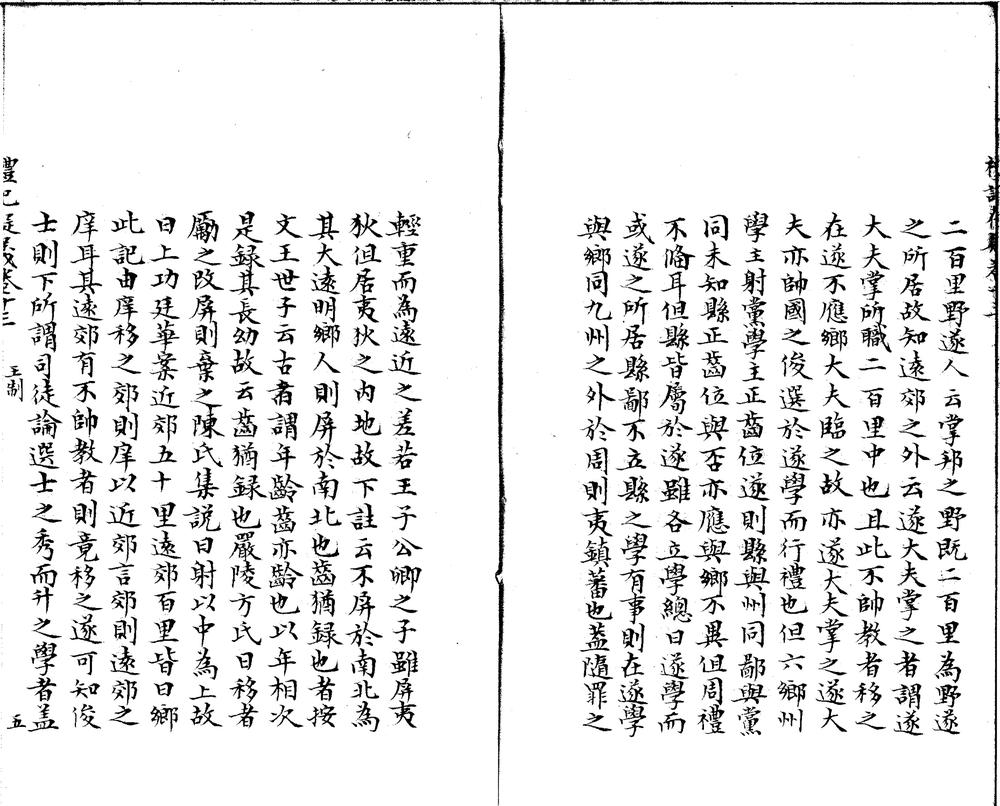 二百里野遂人云掌邦之野既二百里為野遂
之所居故知遠郊之外云遂大夫掌之者謂遂
大夫掌所職二百里中也且此不帥教者移之
在遂不應鄉大夫臨之故亦遂大夫掌之遂大
夫亦帥國之俊選於遂學而行禮也但六鄉州
學主射黨學主正齒位遂則縣與州同鄙與黨
同未知縣正齒位與否亦應與鄉不異但周禮
不備耳但縣皆屬於遂雖各立學總曰遂學而
或遂之所居縣鄙不立縣之學有事則在遂學
與鄉同九州之外於周則夷鎮蕃也蓋隨罪之
輕重而為遠近之差若王子公卿之子雖屏夷
狄但居夷狄之內地故下註云不屏於南北為
其大遠明鄉人則屏於南北也齒猶録也者按
文王世子云古者謂年齡齒亦齡也以年相次
是録其長幼故云齒猶録也嚴陵方氏曰移者
勵之改屏則棄之陳氏集説曰射以中為上故
曰上功廷華案近郊五十里遠郊百里皆曰鄉
此記由庠移之郊則庠以近郊言郊則遠郊之
庠耳其遠郊有不帥教者則竟移之遂可知俊
士則下所謂司徒論選士之秀而升之學者盖
禮記疑義卷十三 王制 五